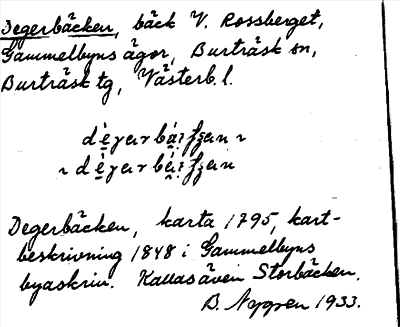 Degerbäcken, bäck V. Rossberget,
Gammelbyns ägor, Burträsk sn,
Burträsk tg, Västerb. l.
Degerbäcken, karta 1795, kart-
beskrivning 1848 i Gammelbyns
byaskriv. Kallas även Storbäcken.
B. Nygren 1933.